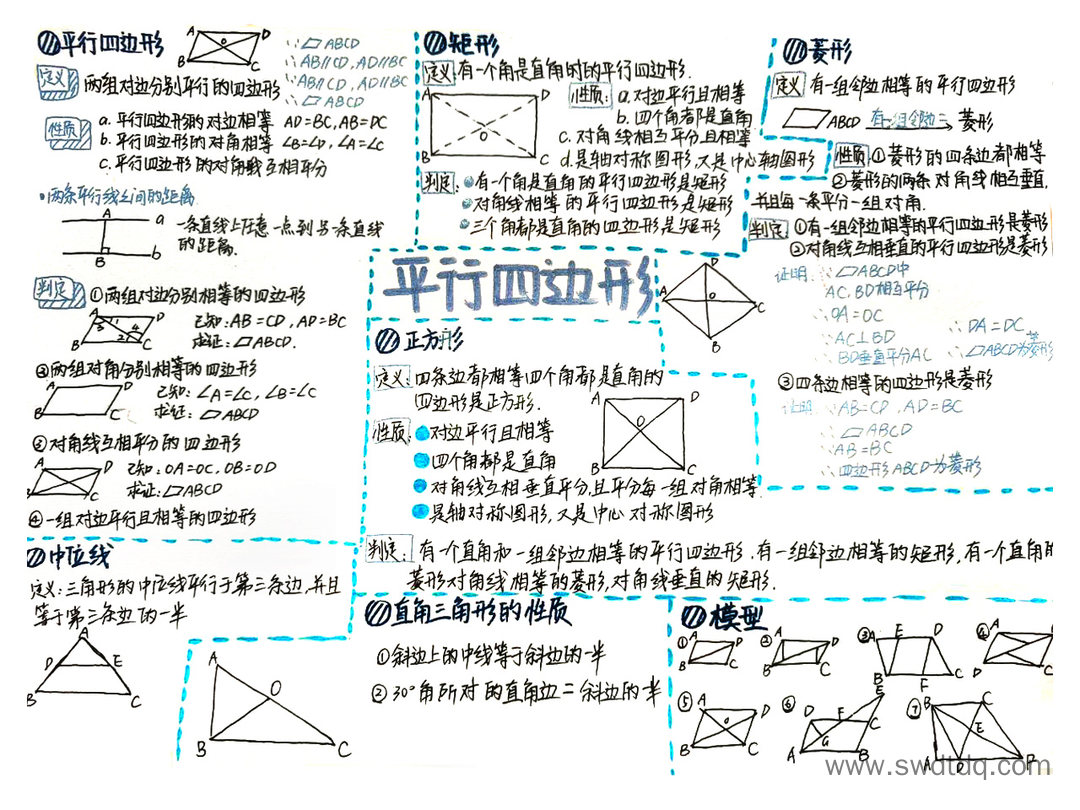 平行四边形
A
D
O
B
C
∵ ▱ABCD
∴ AB∥CD,AD∥BC
∵ AB∥CD,AD∥BC
∴ ▱ABCD
定义 两组对边分别平行的四边形
性质 a. 平行四边形的对边相等 AD=BC,AB=DC
b. 平行四边形的对角相等 ∠B=∠D,∠A=∠C
c. 平行四边形的对角线互相平分
·两条平行线之间的距离
A
a
B
b
一条直线上任意一点到另一条直线
的距离.
判定 ①两组对边分别相等的四边形
A
D
3
1
4
2
B
C
已知:AB=CD,AD=BC
求证:▱ABCD.
②两组对角分别相等的四边形
A
D
B
C
已知:∠A=∠C,∠B=∠C
求证:▱ABCD
③对角线互相平分的四边形
A
D
B
C
已知:OA=OC,OB=OD
求证:▱ABCD
④一组对边平行且相等的四边形
中位线
定义:三角形的中位线平行于第三条边,并且
等于第三条边的一半
A
D
E
B
C
矩形
定义:有一个角是直角时的平行四边形.
A
D
O
B
C
性质: a.对边平行且相等
b.四个角都是直角
c.对角线相互平分且相等
d.是轴对称图形,又是中心轴图形
判定: 有一个角是直角的平行四边形是矩形
对角线相等的平行四边形是矩形
三个角都是直角的四边形是矩形
平行四边形
正方形
定义: 四条边都相等四个角都是直角的
四边形是正方形.
A
D
O
B
C
性质: 对边平行且相等
四个角都是直角
对角线互相垂直平分,且平分每一组对角相等
是轴对称图形,又是中心对称图形
判定: 有一个直角和一组邻边相等的平行四边形.有一组邻边相等的矩形,有一个直角的
菱形对角线相等的菱形,对角线垂直的矩形.
菱形
定义 有一组邻边相等的平行四边形
▱ABCD 有一组邻边= 菱形
性质:①菱形的四条边都相等
②菱形的两条对角线相互垂直,
并且每一条平分一组对角.
判定:①有一组邻边相等的平行四边形是菱形
②对角线互相垂直的平行四边形是菱形
D
A
O
C
B
证明:∵▱ABCD中
AC,BD相互平分
∴OA=OC
∵AC⊥BD
∴BD垂直平分AC
∴DA=DC
∴▱ABCD为菱形
③四条边相等的四边形是菱形
证明:∵AB=CD,AD=BC
∴▱ABCD
∵AB=BC
∴四边形ABCD为菱形
直角三角形的性质
①斜边上的中线等于斜边的一半
②30°角所对的直角边=斜边的一半
A
O
B
C
模型
① A D B C
② A D B C
③ A E D B F C
④ A D B C
⑤ A D O B C
⑥ D F C E G A B
⑦ B C E A D
www.swdtdq.com